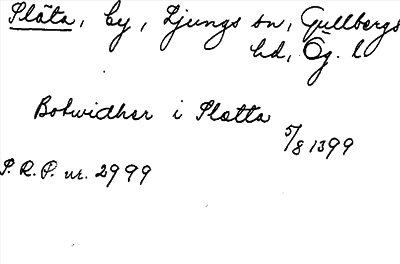 Släta, by, Ljungs sn, Gullbergs
hd, Ög. l
Botwidher i Slætta
5/8 1399
P. R. P. nr. 2999